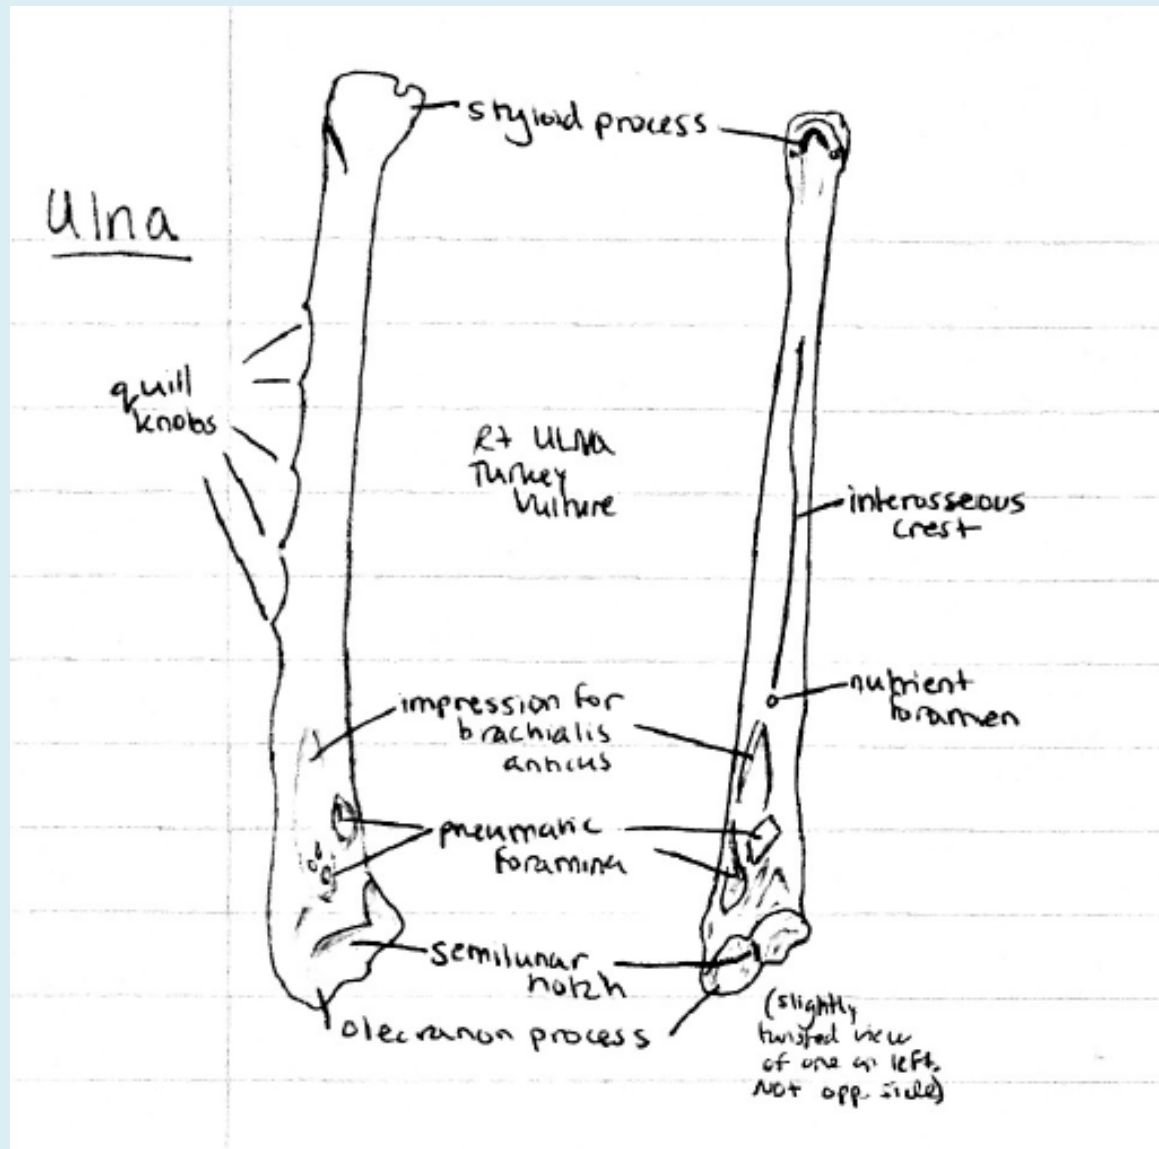 styloid process
Ulna
quill
knobs
Rt ULNA
Turkey
Vulture
interosseous
crest
nutrient
foramen
impression for
brachialis
anticus
pneumatic
foramina
semilunar
notch
olecranon process
(slightly
twisted view
of one on left.
Not opp. side)